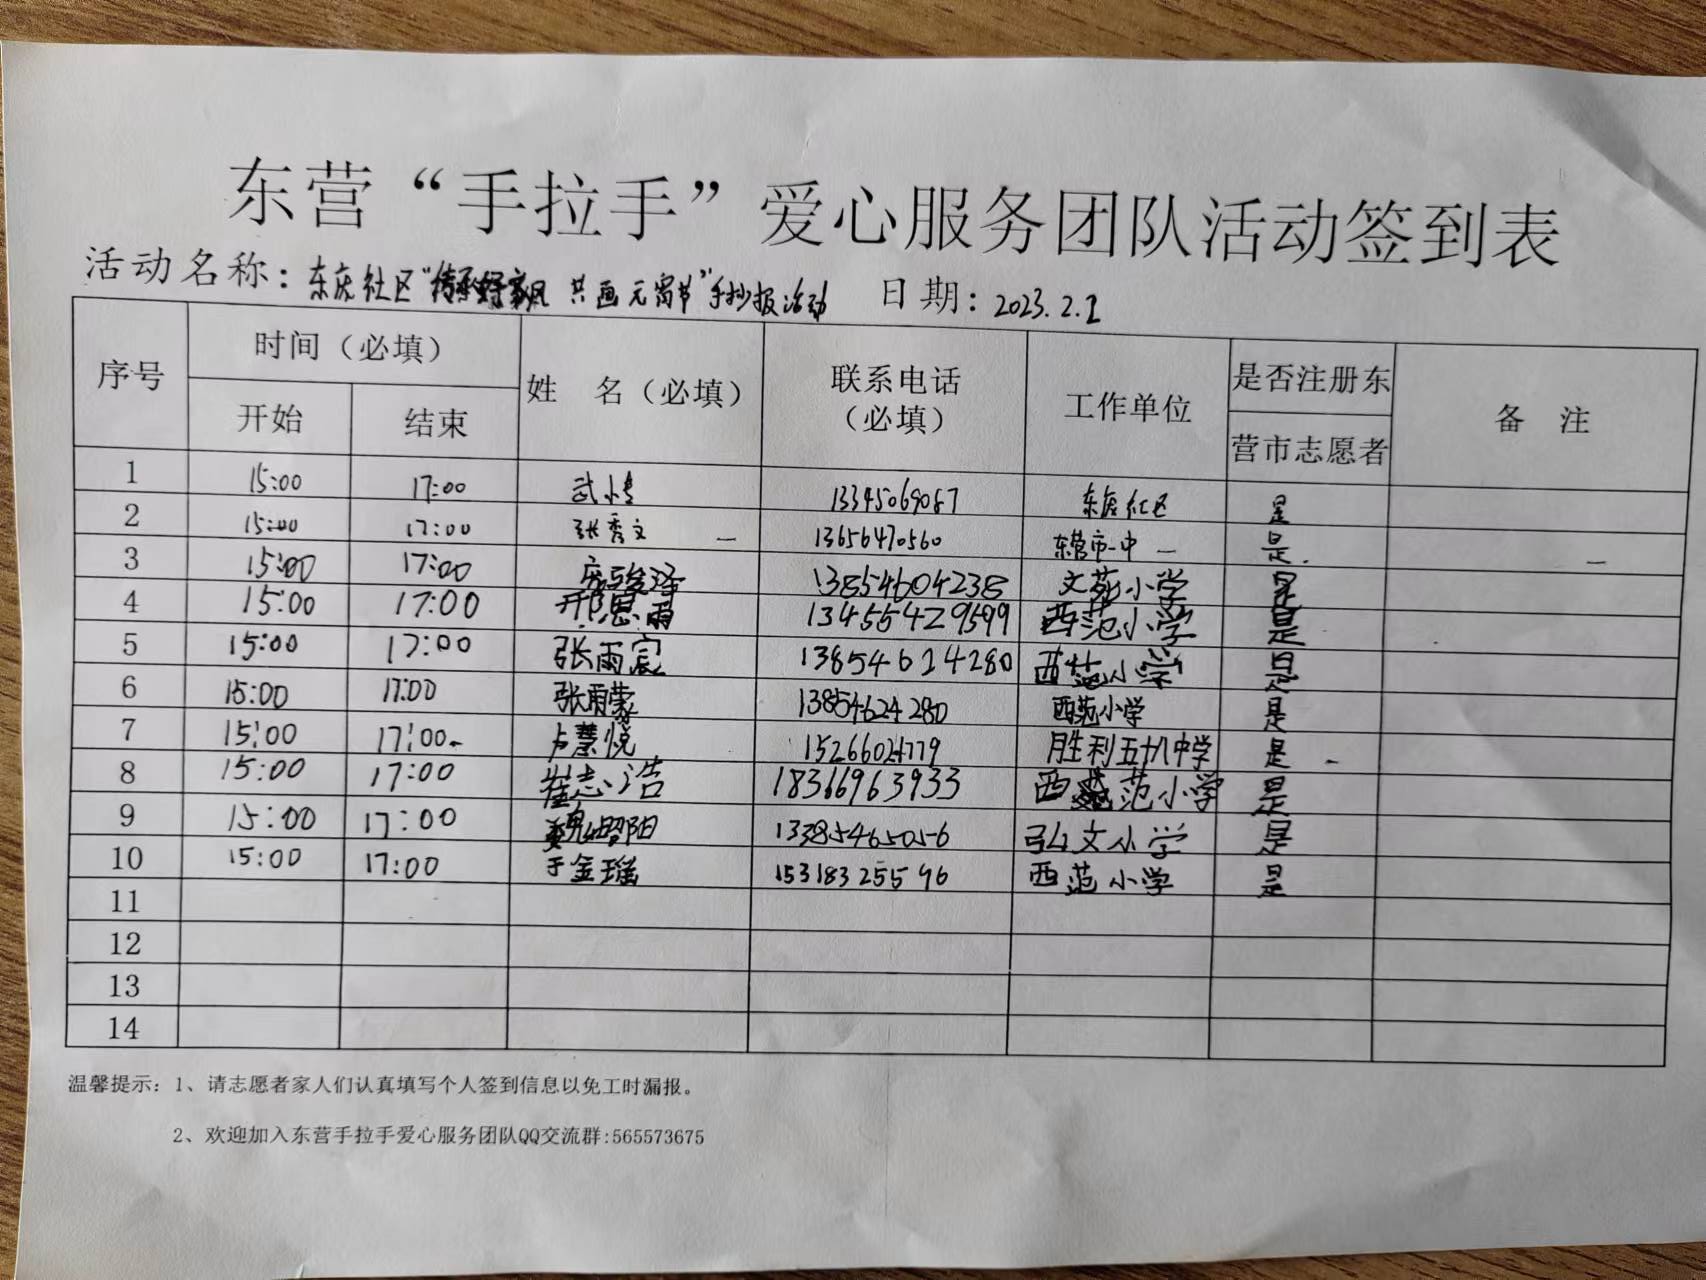 东营“手拉手”爱心服务团队活动签到表
活动名称：东庆社区“传承好家风 共画元宵节”手抄报活动 日期：2023.2.1
序号 时间（必填） 姓 名（必填） 联系电话（必填） 工作单位 是否注册东营市志愿者 备 注
开始 结束
1 15:00 17:00 13345069087 东庆社区 是
2 15:00 17:00 张秀文 — 13656470560 东营市一中 — 是.
3 15:00 17:00 庞骏泽 13854604238 文苑小学 是
4 15:00 17:00 邢思雨 西范小学 是
5 15:00 17:00 张雨宸 13854624280 西范小学 是
6 15:00 17:00 张雨蒙 13854624280 西苑小学 是
7 15:00 17:00 卢慧悦 胜利五十八中学 是
8 15:00 17:00 崔志浩 18366963933 西范小学 是
9 15:00 17:00 13385465056 弘文小学 是
10 15:00 17:00 于金瑶 15318325596 西范小学 是
11
12
13
14
温馨提示：1、请志愿者家人们认真填写个人签到信息以免工时漏报。
2、欢迎加入东营手拉手爱心服务团队QQ交流群:565573675